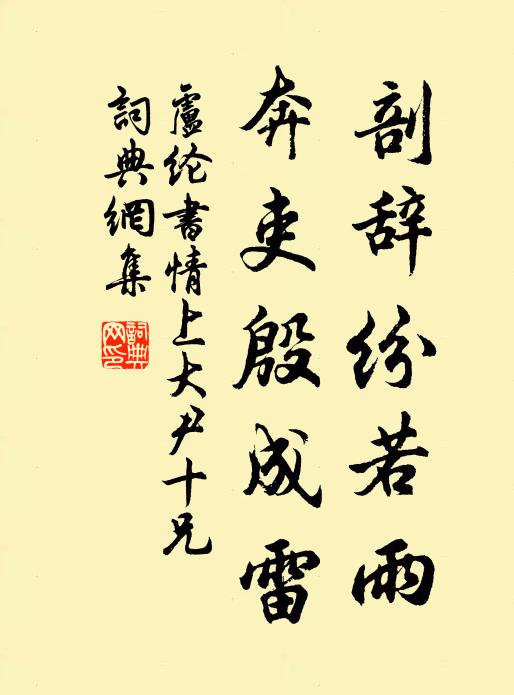 剖辞纷若雨
奔吏殷成雷
盧纶書情上大尹十兄
詞典網集
詞典網印